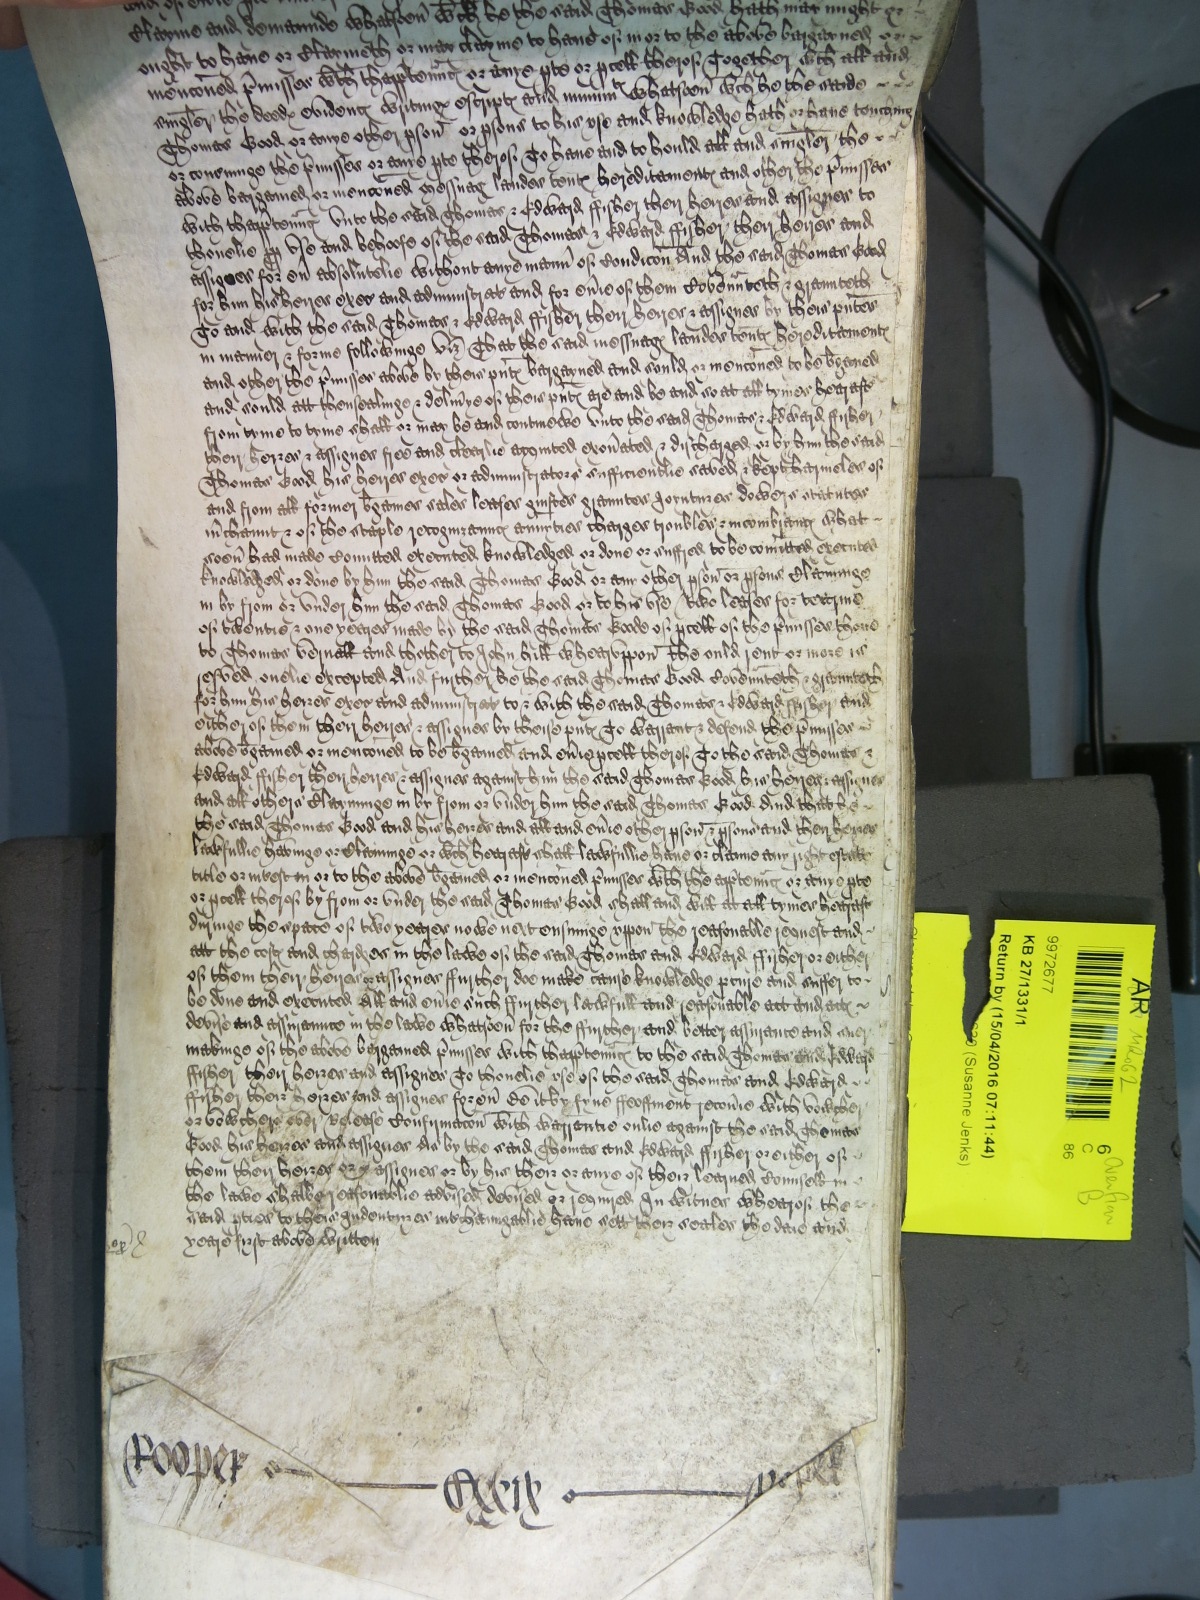 Clayme and demaunde whatsoeu wch he the said Thomas Good hath may might or
ought to haue or Claymeth or may clayme to haue of in or to the aboue bargayned or
menconed pmisses wth thapptennc or anye pte or pcell therof Together wth all and
singler the deede evidenc writinge escripte and minim whatsoeu wch he the saide
Thomas Good or anye other pson or psons to his vse and knowledge hath or haue touching
or conninge the pmisses or anye pte therof To haue and to hould all and singler the
aboue bargayned or menconed messuag landes tente hereditamente and other the pmisses
with thapptennc vnto the said Thomas & Edward ffisher their heires and assignes to
thonelie pp vse and behoofe of the said Thomas & Edward ffisher their heires and
assignes for eu absolutelie without anye mann of Condicon And the said Thomas Good
for him his heires exec and administrat and for euie of them Covennteth & graunteth
To and with the said Thomas & Edward ffisher their heires & assignes by theis pntes
in manner & forme followinge viz That the said messuage landes tente hereditamente
and other the pmisses aboue by theis pnte bargayned and sould or menconed to be bgained
and sould att thensealinge & deliuye of theis pnte are and be and so at all tymes heraft
from tyme to tyme shall or may be and contineue vnto the said Thomas & Edward ffisher
their heires & assignes free and clearlie acquited exonated & discharged or by him the said
Thomas Good his heires exec or administrators sufficientlie saved & kept harmeles of
and from all former bgaines sales leases guiftes grauntes Joyntures dowers statutes
mchannt & of the staple recognizannc anuities charges troubles & incombranc what
soeu had made Comitted executed knowledged or done or suffred to be comitted executed
knowledged or done by him the said Thomas Good or any other pson or psons Claiminge
in by from or vnder him the said Thomas Good or to his vse Two leases for tearme
of twentie & one yeares made by the said Thomas Goode of pcell of the pmisses thone
to Thomas vernall and thother to John hill whearvppon the ould rent or more is
resved onelie excepted And further he the said Thomas Good Covennteth & graunteth
for him his heires exec and administrat to & with the said Thomas & Edward ffisher and
either of them their heires & assignes by theise pnte To warrant & defend the pmisses
aboue bgained or menconed to be bgained and euie pcell therof To the said Thomas &
Edward ffisher their heires & assignes against him the said Thomas Good his heires & assignes
and all others Clayminge in by from or vnder him the said Thomas Good And that he
the said Thomas Good and his heires and all and euie other pson & psons and their heires
lawfullie havinge or Claiminge or wch heraft shall lawfullie haue or claime any right estate
title or intest in or to the aboue bgained or menconed pmisses wth the apptennc or anye pte
or pcell therof by from or vnder the said Thomas Good shall and will at all tymes heraft
duringe the space of two yeares nowe next ensuinge vppon the reasonable request and
att the cost and chardges in the lawe of the said Thomas and Edward ffisher or either
of them their heires or assignes ffurther doe make cause knowledge pcure and suffer to
be done and executed All and euie such ffurther lawfull and reasonable act and acts
devise and assurannce in the lawe whatsoeu for the ffurther and better assurance and suer
makinge of the aboue bargained pmisses with thapptennc to the said Thomas and Edward
ffisher their heires and assignes To thonelie vse of the said Thomas and Edward
ffisher their heires and assignes for eu Be it by fyne ffeoffment recouie with voucher
or vowchers over Release Confirmacon with warrantie onlie against the said Thomas
Good his heires and assignes As by the said Thomas and Edward ffisher or either of
them their heires or assignes or by his their or anye of their learned Counsell in
the lawe shalbe reasonablie advised devised or required In witnes whearof the
said pties to theis Indentures interchaungablie haue sett their seales the daie and
yeare first aboue written
Rooper Cxxix roper
AR
9972677
KB 27/1331/1
Return by (15/04/2016 07:11:44)
(Susanne Jenks)
6
C
86